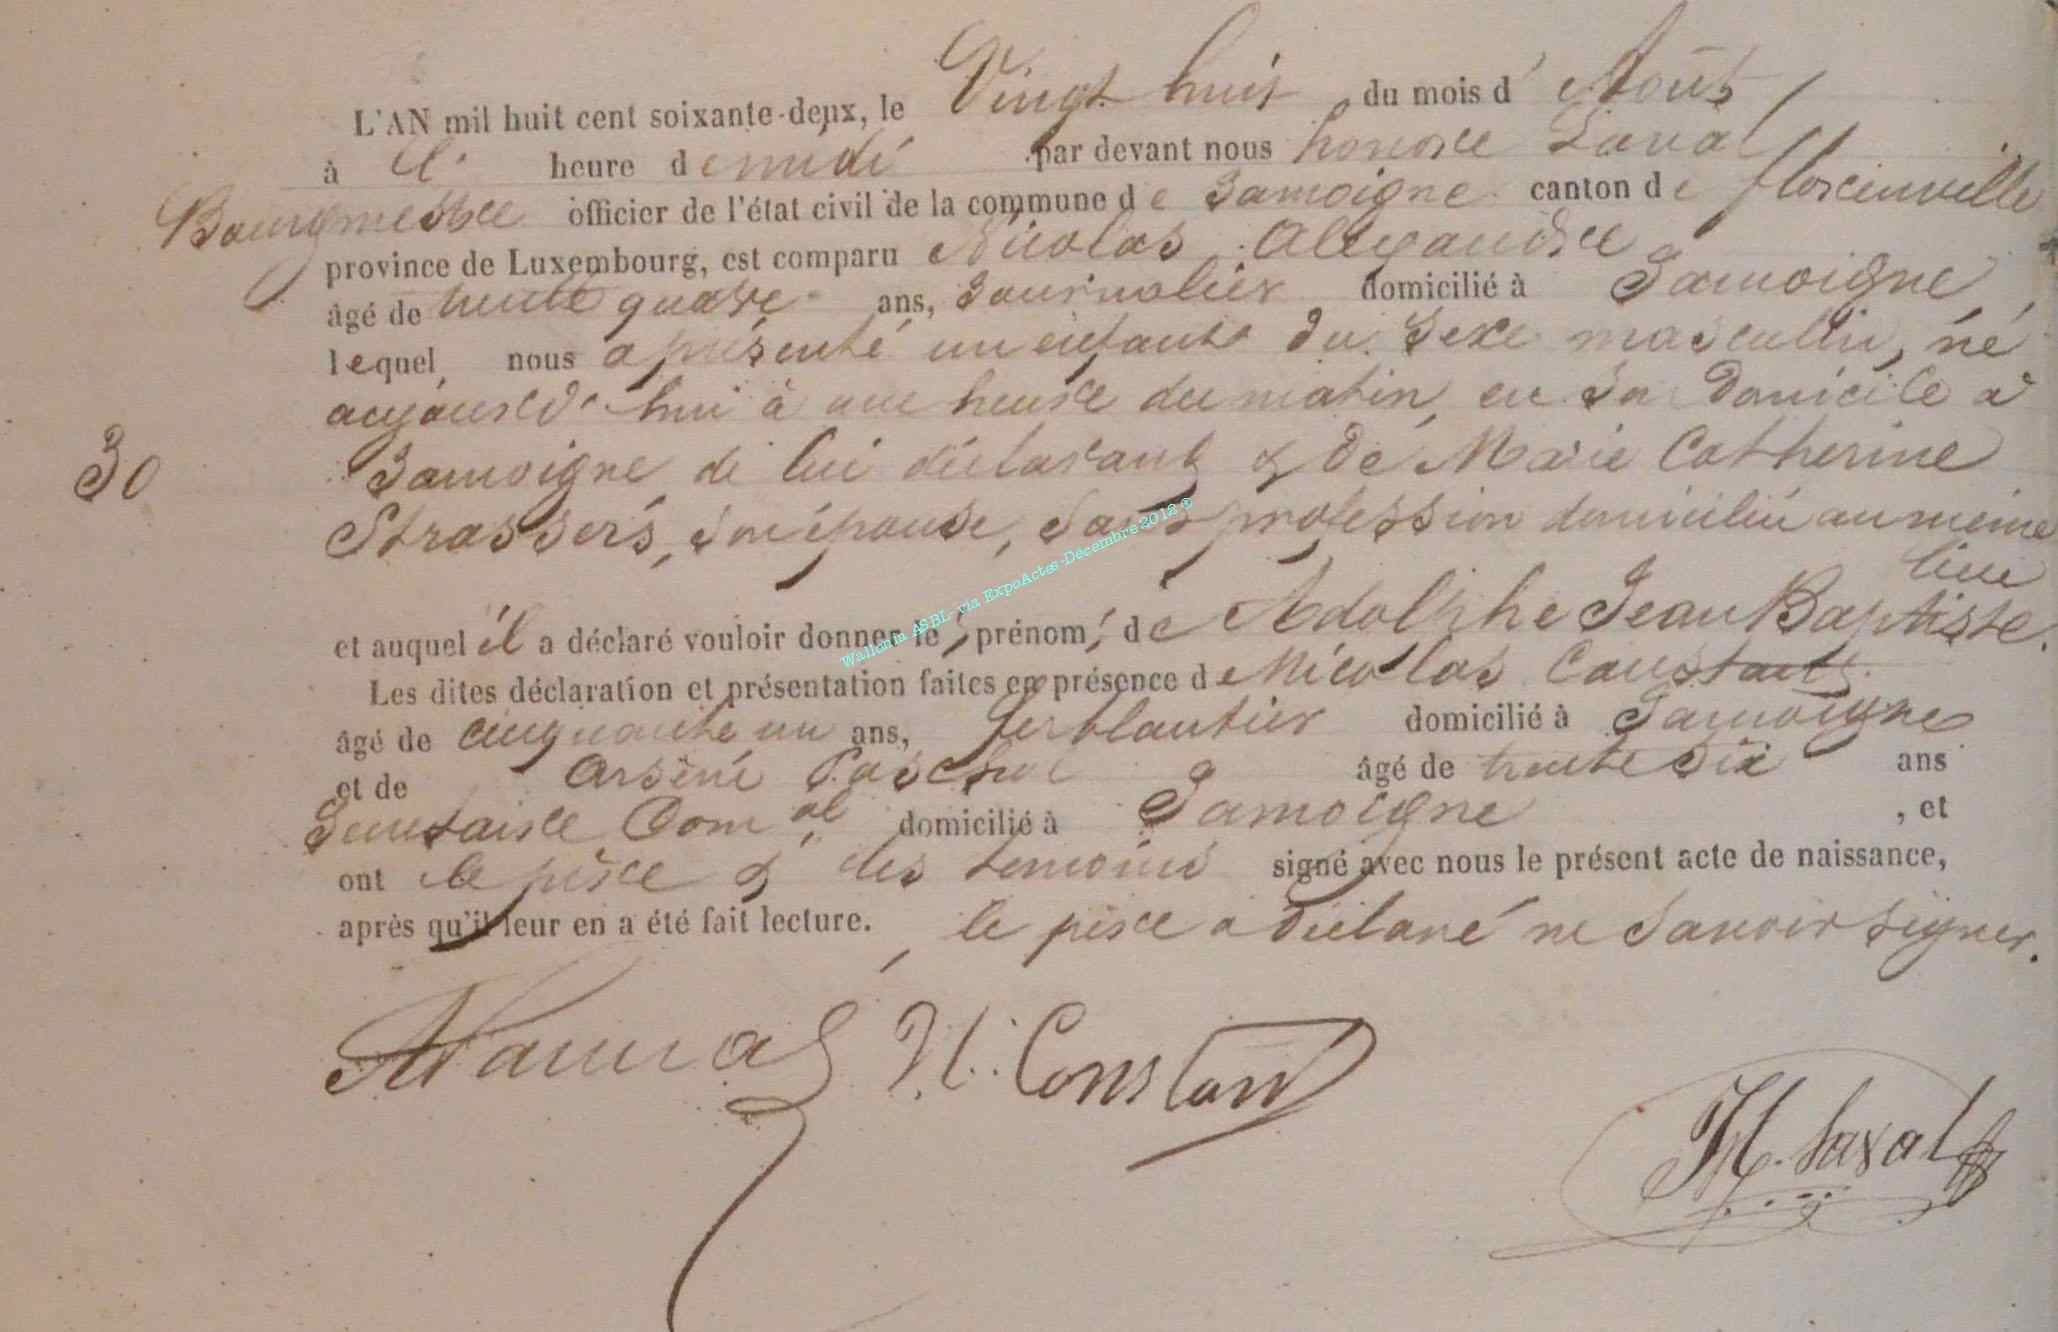 L'AN mil huit cent soixante-deux, le Vingt huit du mois d' Août
à l' heure de midi par devant nous honoré Laval
Bourgmestre officier de l'état civil de la commune de Jamoigne canton de florenville
province de Luxembourg, est comparu Nicolas Alexandre
âgé de trente quatre ans, Journalier domicilié à Jamoigne,
lequel nous a présenté un enfant du Sexe masculin, né
aujourd'hui à une heure du matin, en son Domicile à
30 Jamoigne de lui déclarant & de Marie Catherine
Strassers, son épouse, sans profession domiciliée au même
lieu
et auquel il a déclaré vouloir donner les prénoms de Adolphe Jean Baptiste.
Les dites déclaration et présentation faites en présence de Nicolas Constant
âgé de cinquante un ans, ferblantier domicilié à Jamoigne
et de Arsène Paschal âgé de trente six ans
Secrétaire Com.al domicilié à Jamoigne , et
ont le père & les temoins signé avec nous le présent acte de naissance,
après qu'il leur en a été fait lecture. le père a déclaré ne savoir signer.
N. Constant
H. Laval
Wallonia ASBL - via ExpoActes - Décembre 2012 ®